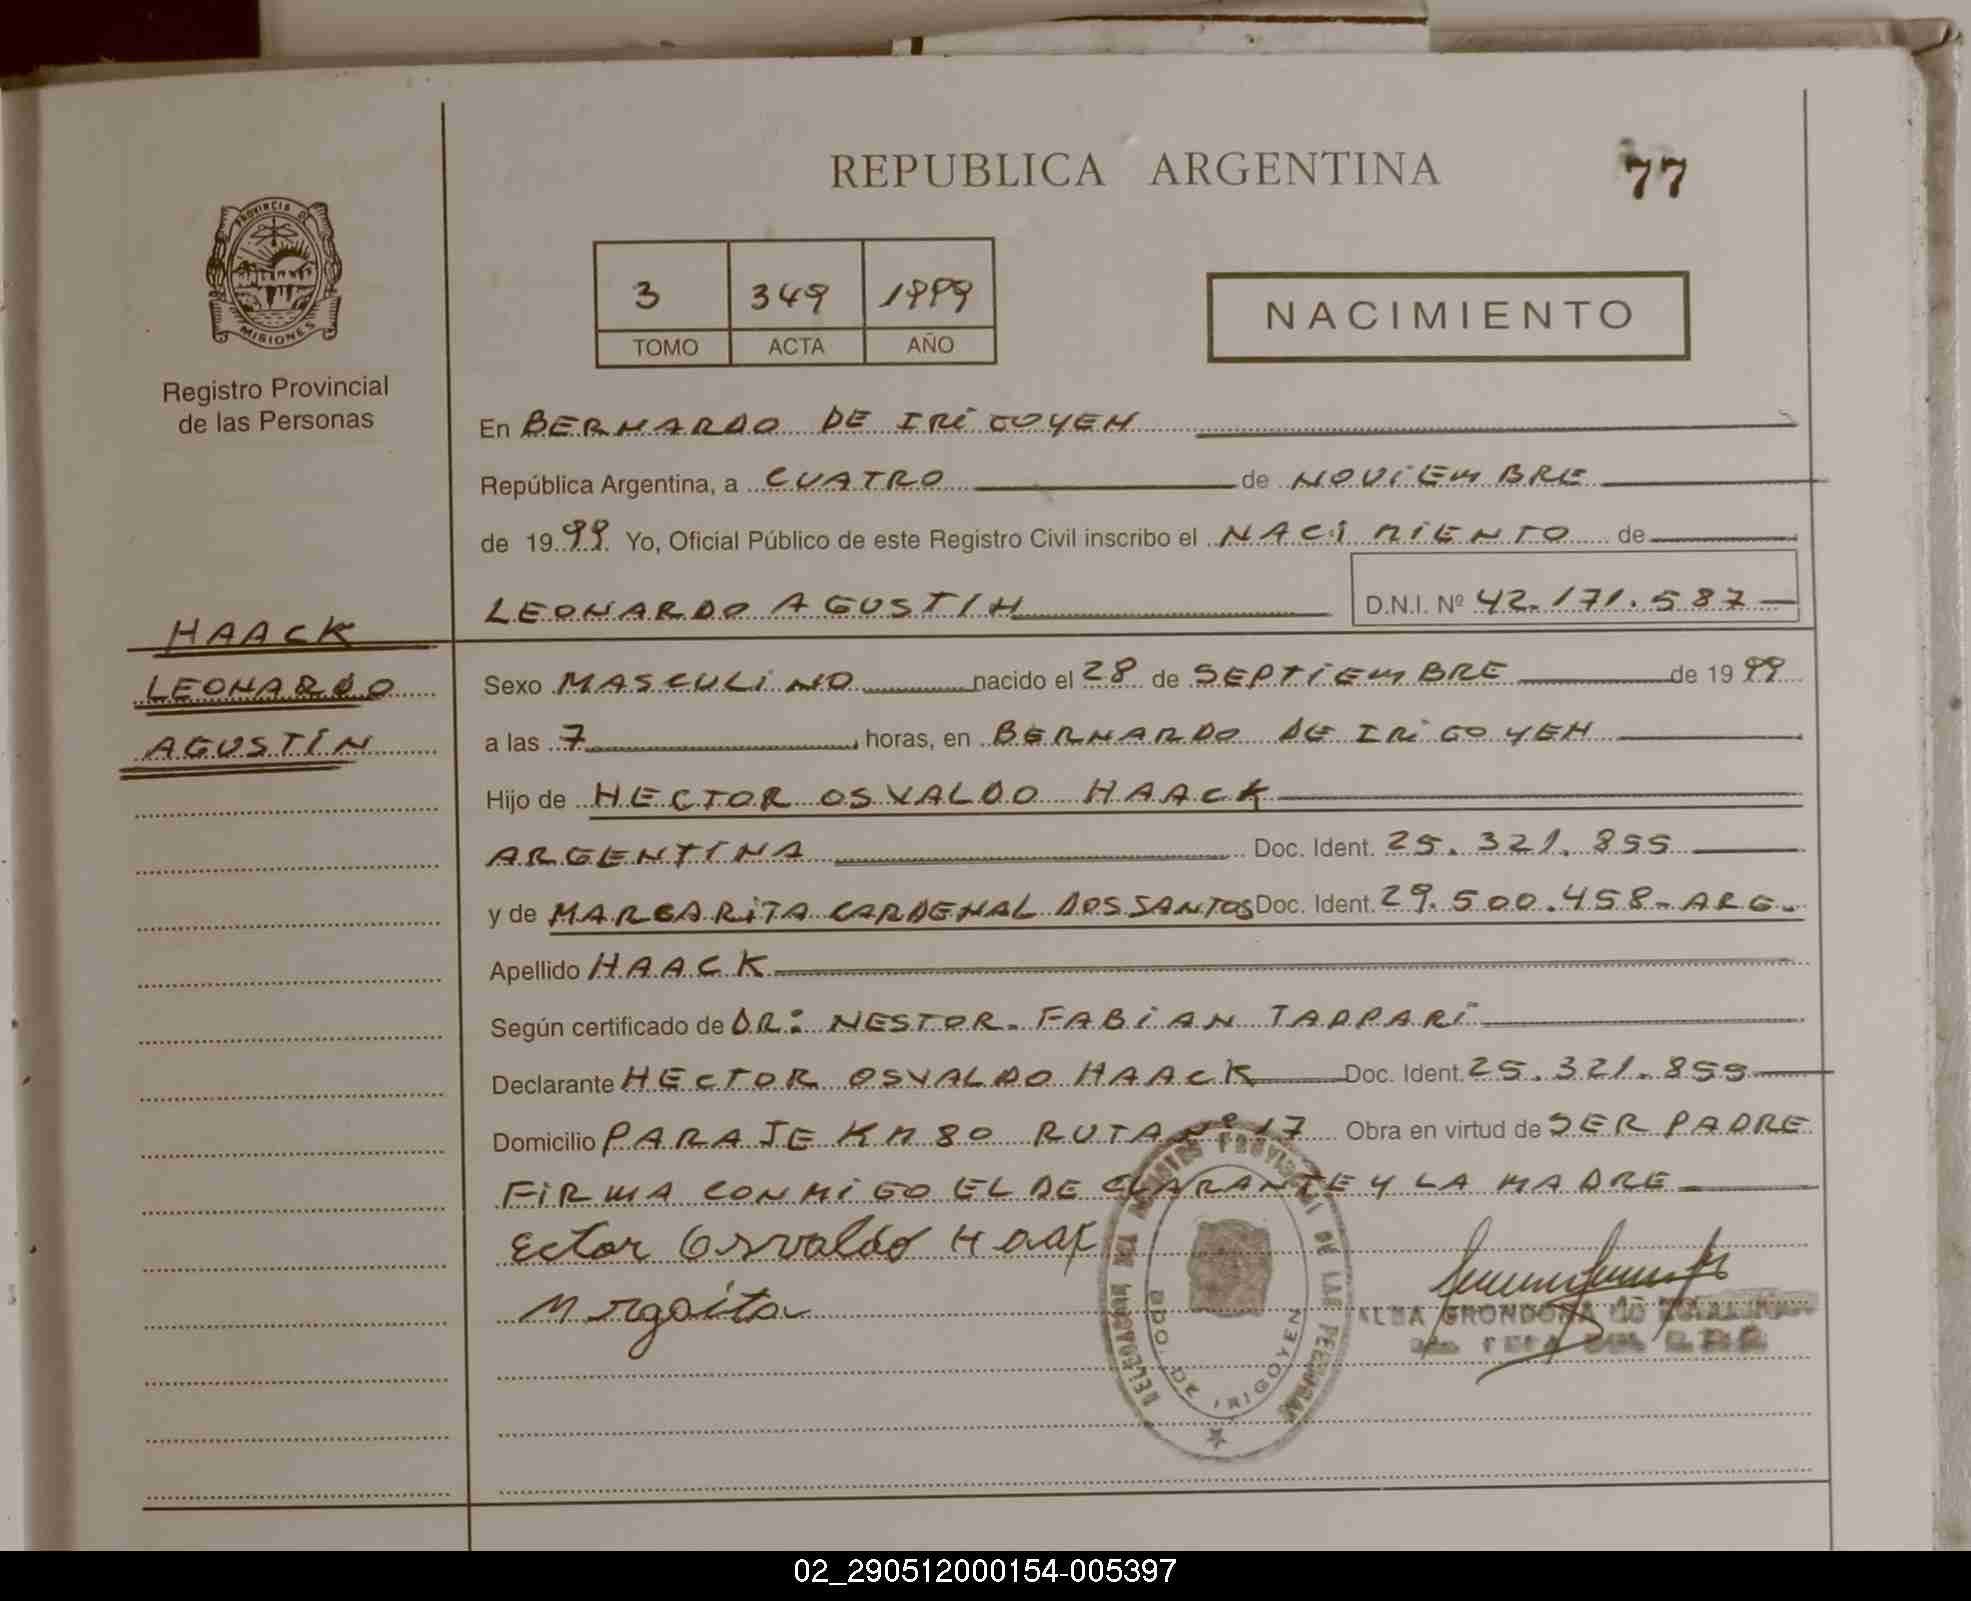 REPUBLICA ARGENTINA
77
PROVINCIA DE
MISIONES
Registro Provincial
de las Personas
3 349 1999
TOMO ACTA AÑO
NACIMIENTO
En BERNARDO DE IRIGOYEN
República Argentina, a CUATRO de NOVIEMBRE
de 1999 Yo, Oficial Público de este Registro Civil inscribo el NACIMIENTO de
LEONARDO AGUSTIN D.N.I. Nº 42.171.587
HAACK
LEONARDO
AGUSTIN
Sexo MASCULINO nacido el 28 de SEPTIEMBRE de 1999
a las 7 horas, en BERNARDO DE IRIGOYEN
Hijo de HECTOR OSVALDO HAACK
ARGENTINA Doc. Ident. 25.321.855
y de MARGARITA CARDENAL DOS SANTOS Doc. Ident. 29.500.458-ARG.
Apellido HAACK
Según certificado de DR: NESTOR. FABIAN TAPPARI
Declarante HECTOR OSVALDO HAACK Doc. Ident. 25.321.855
Domicilio PARAJE KM 80 RUTA Nº 17 Obra en virtud de SER PADRE
FIRMA CONMIGO EL DECLARANTE Y LA MADRE
Ector Osvaldo Haak
Mrgaita
BDO. DE IRIGOYEN
ALBA GRONDONA
02_290512000154-005397